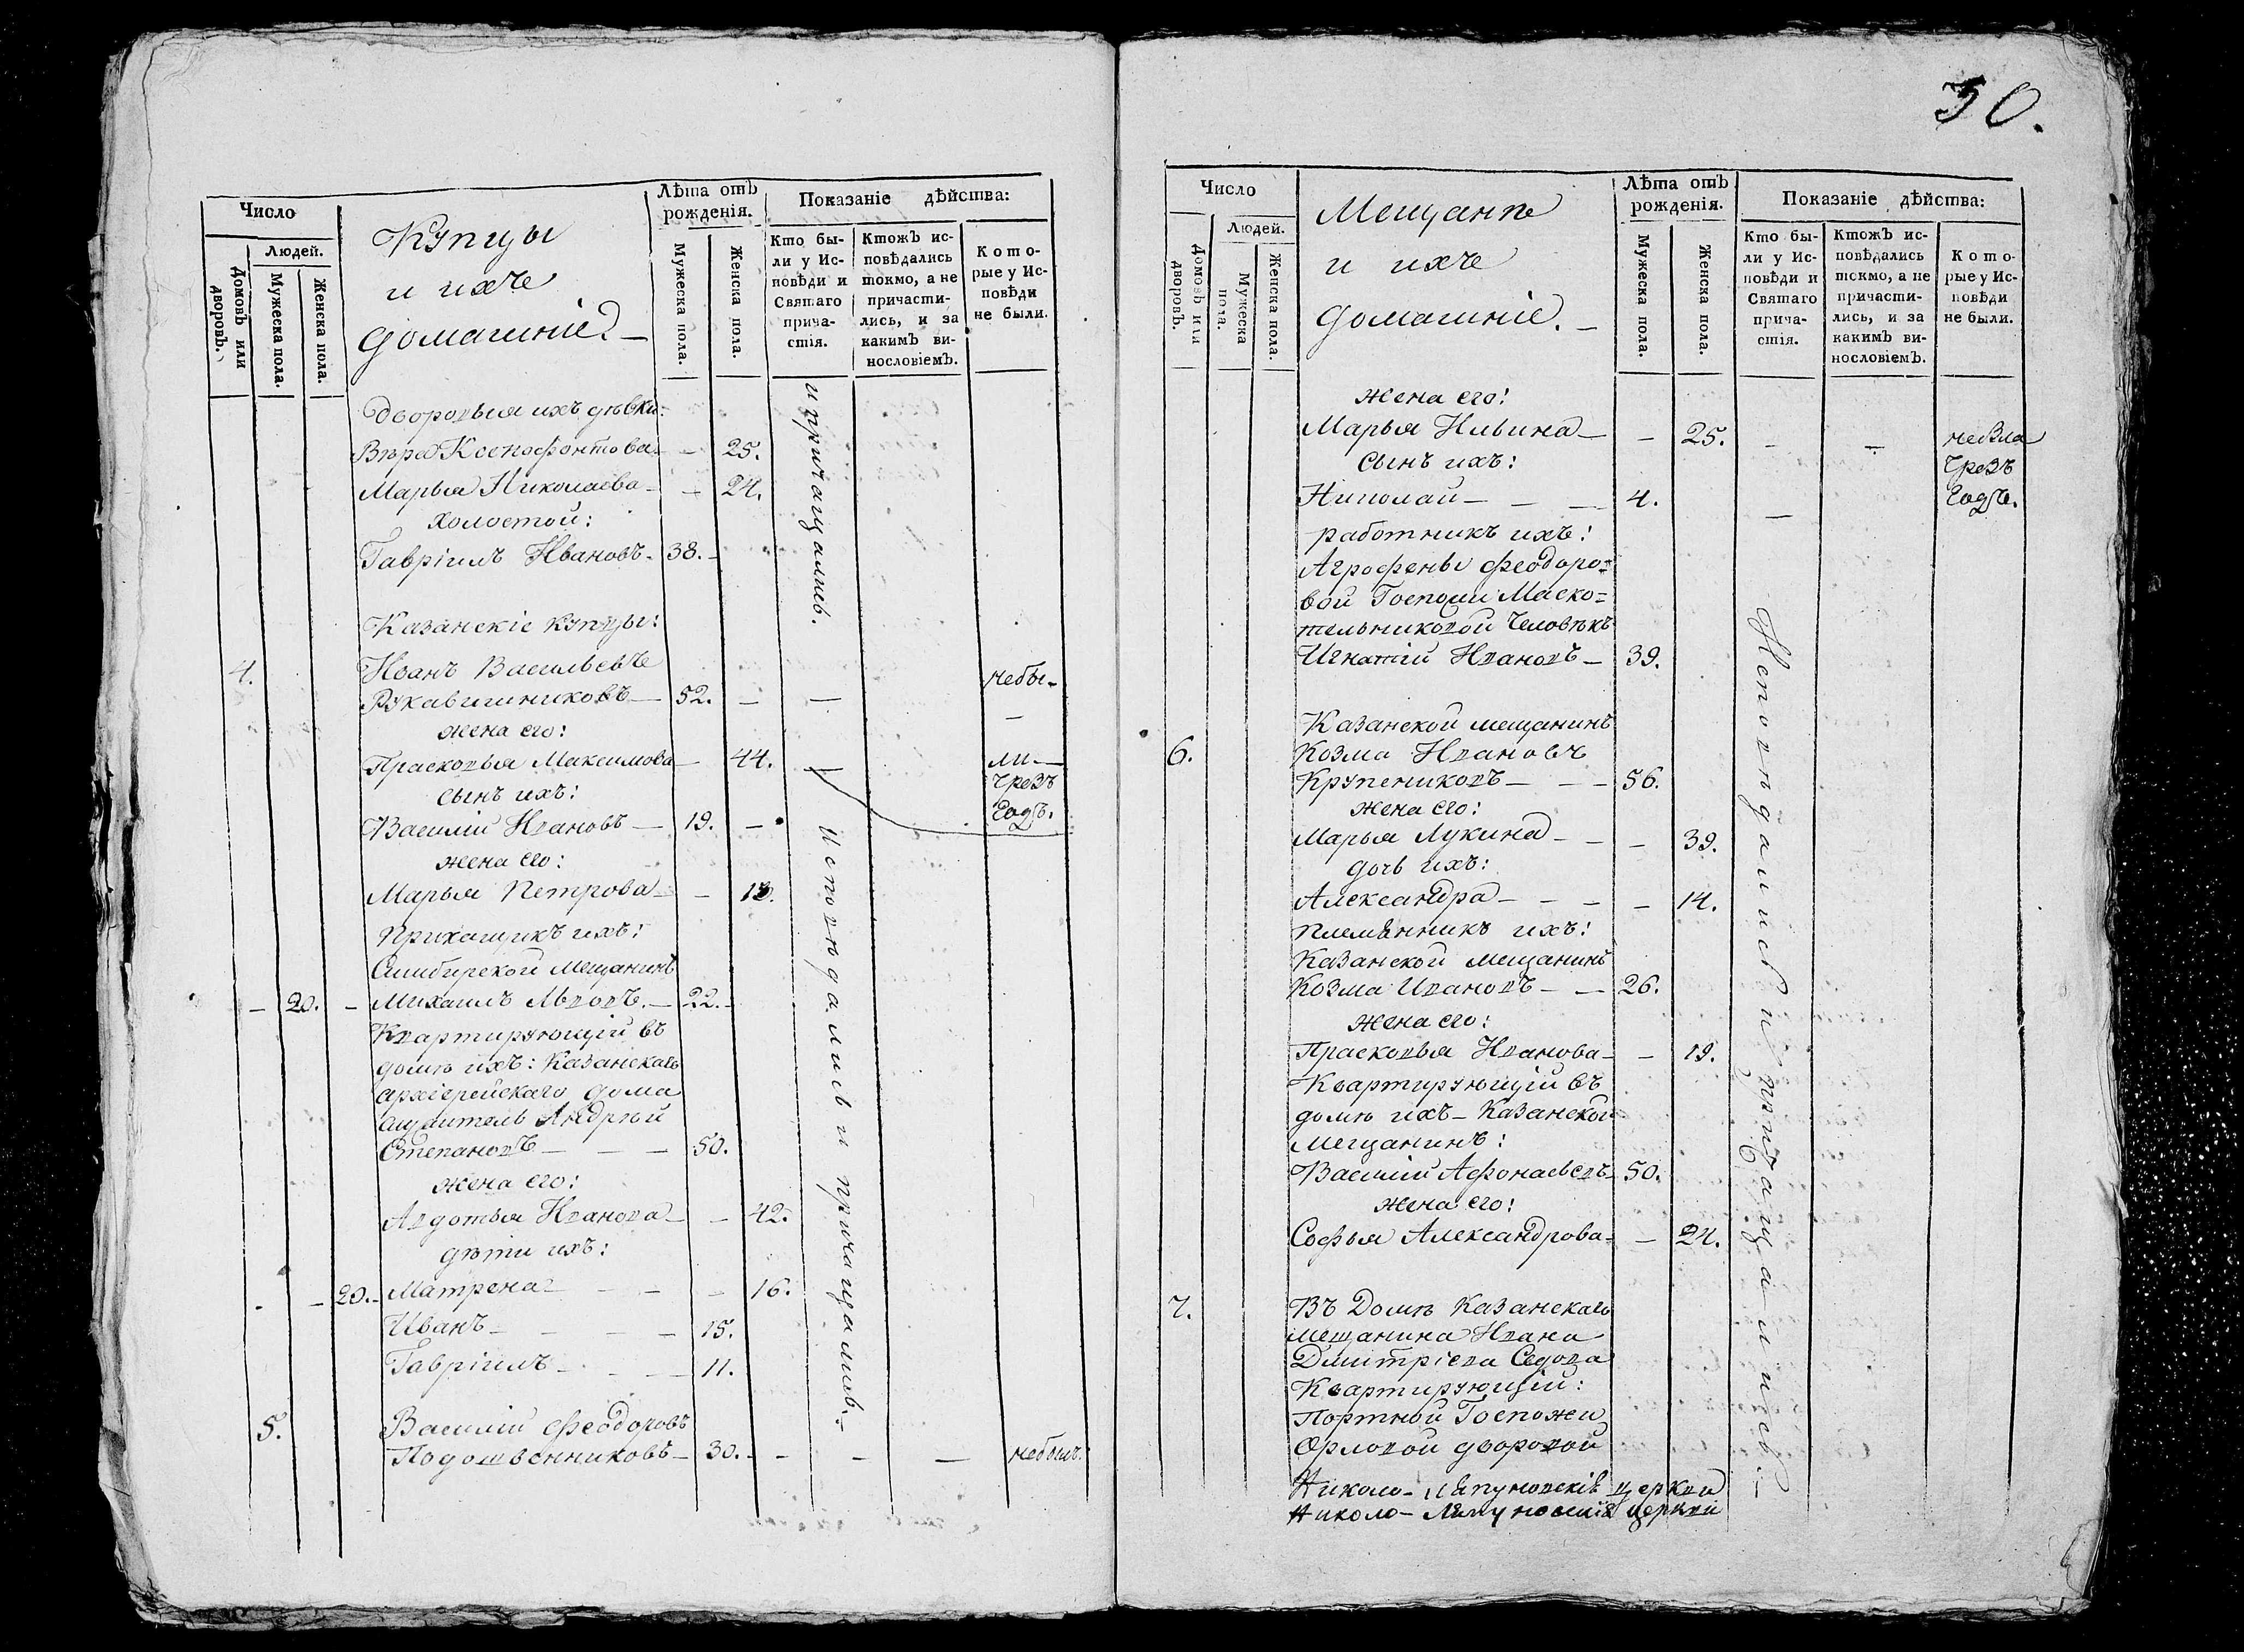 Число
Людей.
Домовъ или дворовъ.
Мужеска пола.
Женска пола.
Купцы
и ихъ
домашніе
Лѣта отъ рожденія.
Мужеска пола.
Женска пола.
Показаніе дѣйства:
Кто бы-
ли у Ис-
повѣди и
Святаго
прича-
стія.
Ктожъ ис-
повѣдались
токмо, а не
причасти-
лись, и за
какимъ ви-
нословіемъ.
Кото-
рые у Ис-
повѣди
не были.
Дворовыя ихъ дѣвки:
Вѣра Ксенофонтова — 25.
Марья Николаева — 24.
холостой:
Гавріилъ Ивановъ — 38. —
и причащались.
Казанскіе купцы:
4. Иванъ Васильевъ
Рукавишниковъ — 52. — небы-
жена его:
Прасковья Максимова — 44. — ли —
сынъ ихъ: чрезъ
Василій Ивановъ — 19. — годъ.
жена его:
Марья Петрова — —
Прикащикъ ихъ:
Симбирской мещанинъ
— 20. — Михаилъ Львовъ. — 22. —
Квартирующій въ
домѣ ихъ: Казанскаго
архіерейскаго дома
Андрѣй
Степановъ — — — 50.
жена его:
Авдотья Иванова — — 42.
дѣти ихъ:
— 20. Матрена — — — 16.
Иванъ — — — 15.
Гавріилъ — — — 11.
исповѣдались и причащались. —
5. Василій Феодоровъ
Подошвенниковъ — 30. — — — — небылъ.
30.
Число
Людей.
Домовъ или дворовъ.
Мужеска пола.
Женска пола.
Мещане
и ихъ
домашніе. —
Лѣта отъ рожденія.
Мужеска пола.
Женска пола.
Показаніе дѣйства:
Кто бы-
ли у Ис-
повѣди и
Святаго
прича-
стія.
Ктожъ ис-
повѣдались
токмо, а не
причасти-
лись, и за
какимъ ви-
нословіемъ.
Кото-
рые у Ис-
повѣди
не были.
жена его:
Марья Ильина — — 25. — —
сынъ ихъ: чрезъ
Николай — — — 4. — годъ.
работникъ ихъ:
Агрофены Феодоро=
вой Госпожи Маско=
тельниковой человѣкъ
Игнатій Ивановъ — 39.
Казанской мещанинъ
6. Козма Ивановъ
Крупениковъ — — — 56.
жена его:
Марья Лукина — — — 39.
дочь ихъ:
Александра — — — — 14.
Племянникъ ихъ:
Казанской мещанинъ
Козма Ивановъ — — 26.
жена его:
Прасковья Иванова — — 19.
Квартирующій въ
домѣ ихъ — Казанской
мещанинъ:
Василій Афонасьевъ 50.
жена его:
Софья Александрова — — 24.
Исповѣдались и причащались. —
7. Въ Домѣ Казанскаго
мещанина Ивана
Дмитріева Седова
Квартирующій:
Портной Госпожи
Орловой дворовой
Николо-Ляпуновскія церкви
Николо-Ляпуновскія церкви